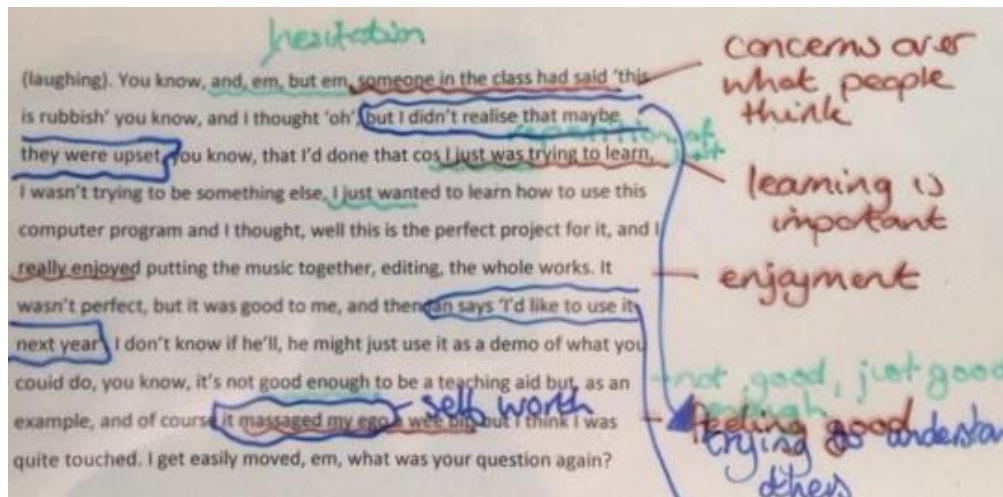 hesitation
(laughing). You know, and, em, but em, someone in the class had said 'this
is rubbish' you know, and I thought 'oh', but I didn't realise that maybe
they were upset, you know, that I'd done that cos I just was trying to learn,
I wasn't trying to be something else, I just wanted to learn how to use this
computer program and I thought, well this is the perfect project for it, and I
really enjoyed putting the music together, editing, the whole works. It
wasn't perfect, but it was good to me, and then an says 'I'd like to use it
next year' I don't know if he'll, he might just use it as a demo of what you
could do, you know, it's not good enough to be a teaching aid but, as an
example, and of course it massaged my ego a wee bit but I think I was
quite touched. I get easily moved, em, what was your question again?
concerns over
what people
think
repetition of
learning is
important
enjoyment
not good, just good
enough
self worth
feeling good
trying to understan
others